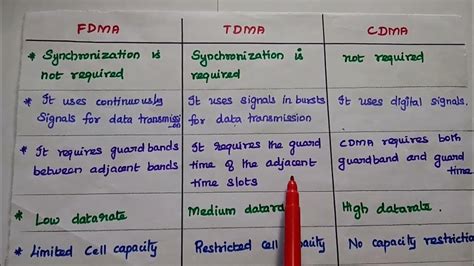 FDMA TDMA CDMA
* Synchronization is
not required
Synchronization is
required
not required
* It uses continuously
Signals for data transmission
It uses signals in bursts
for data transmission
It uses digital signals.
* It requires guard bands
between adjacent bands
It requires the guard
time of the adjacent
time slots
CDMA requires both
guardband and guard
time
* Low datarate
Medium datarate
High datarate.
* Limited Cell capacity
Restricted cell capacity
No capacity restric